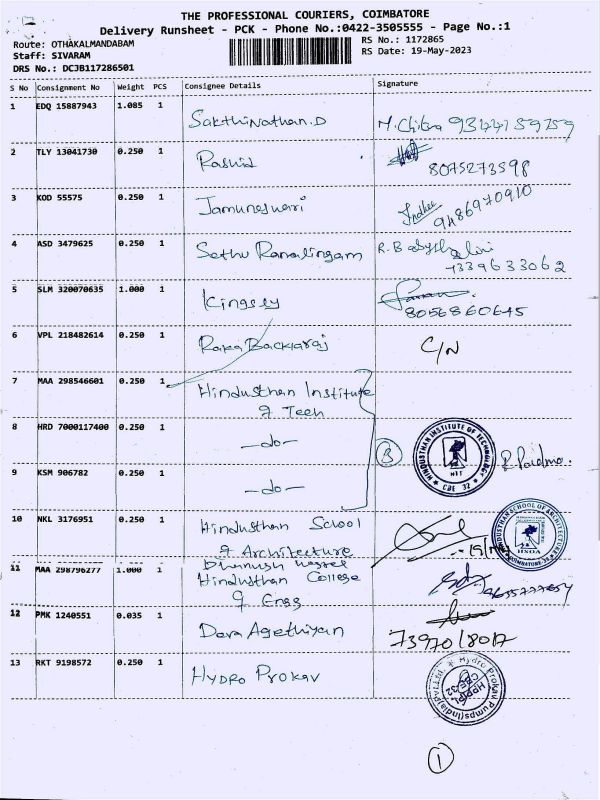 THE PROFESSIONAL COURIERS, COIMBATORE
Delivery Runsheet - PCK - Phone No.:0422-3505555 - Page No.:1
Route: OTHAKALMANDABAM
RS No.: 1172865
Staff: SIVARAM
RS Date: 19-May-2023
DRS No.: DCJB117286501
S No Consignment No Weight PCS Consignee Details Signature
1 EDQ 15887943 1.085 1 Sakthinathan.D M.Chitra
2 TLY 13041730 0.250 1 Rashid
8075273598
3 KOD 55575 0.250 1 Jamuneswari
9486970910
4 ASD 3479625 0.250 1 Sethu Ramalingam
7339633062
5 SLM 320070635 1.000 1 Kingsly
8056860645
6 VPL 218482614 0.250 1 Raka Backiaraj C/N
7 MAA 298546601 0.250 1 Hindusthan Institute
of Tech
8 HRD 7000117400 0.250 1 -do-
3 HINDUSTHAN INSTITUTE OF TECHNOLOGY
HIT
CBE 32
9 KSM 906782 0.250 1 -do-
10 NKL 3176951 0.250 1 Hindusthan School
of Architecture
HINDUSTHAN SCHOOL OF ARCHITECTURE
HSOA
COIMBATORE-32
11 MAA 298796277 1.000 1
Hindusthan College
of Engg
12 PMK 1240551 0.035 1 Deva Agethiyan
13 RKT 9198572 0.250 1 Hydro Prokav
Hydro Prokav Pumps(India)Pvt.Ltd.
HPPIPL
CBE-32
1